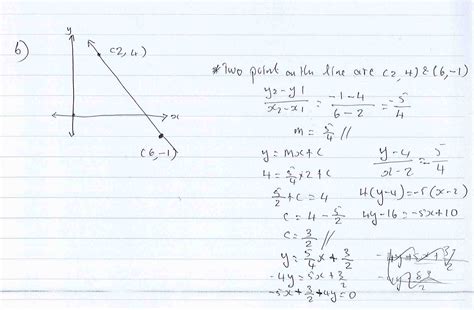 b)
y
(2, 4)
x
(6, -1)
* Two point on the line are (2, 4) & (6, -1)
y2-y1/x2-x1 = -1-4/6-2 = -5/4
m = 5/4 //
y = mx + c
4 = 5/4 x 2 + c
5/2 + c = 4
c = 4 - 5/2
c = 3/2 //
y = 5/4 x + 3/2
-4y = 5x + 3/2
-5x + 3/2 + 4y = 0
y-4/x-2 = -5/4
4(y-4) = -5(x-2)
4y-16 = -5x+10